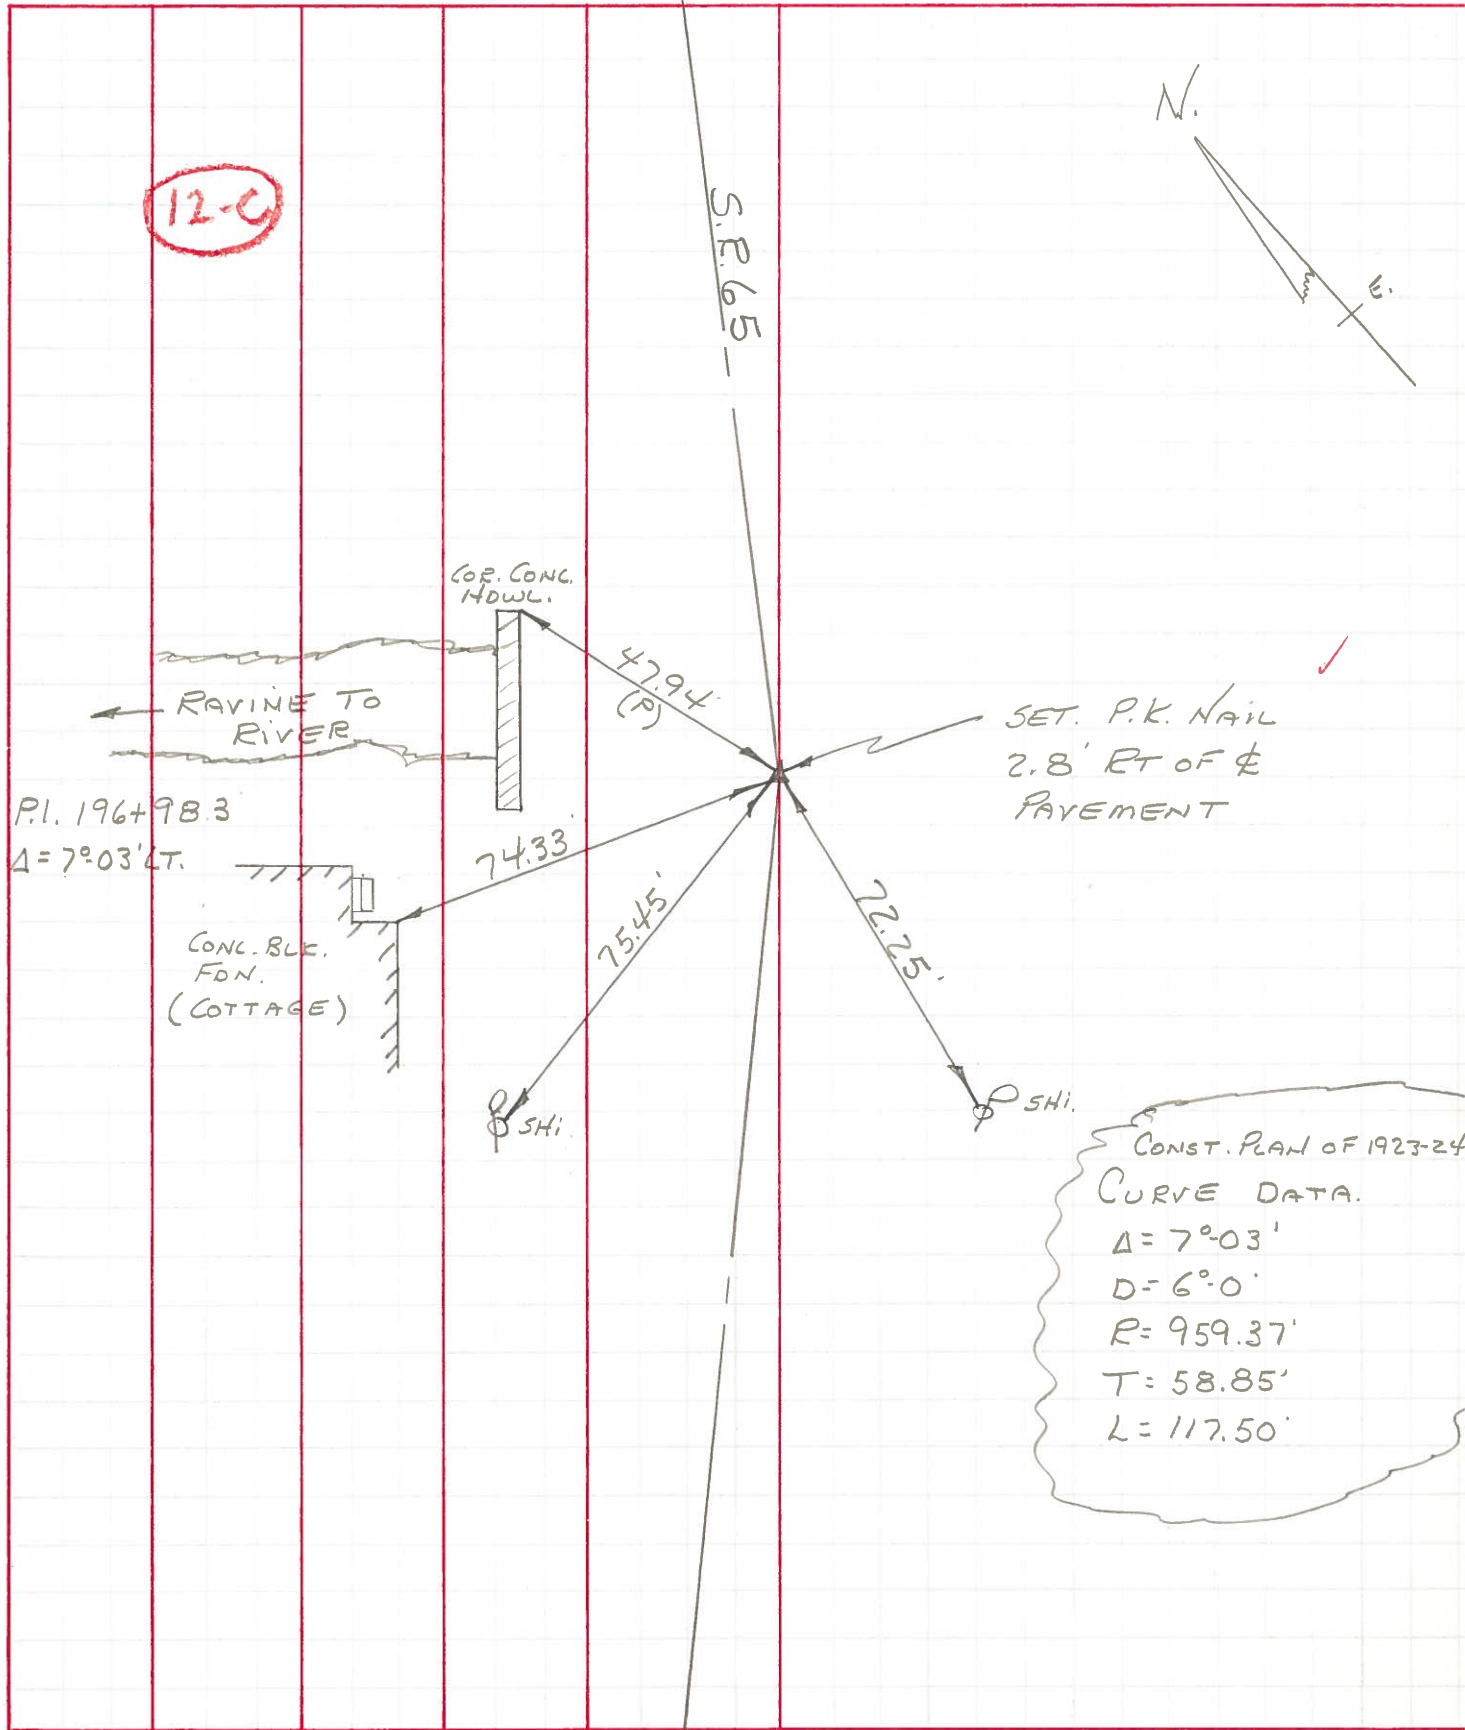 12-C
N.
E.
S.R.65
COR. CONC.
HDWL.
47.94'
(R)
RAVINE TO
RIVER
SET. P.K. NAIL
2.8' RT OF ℄
PAVEMENT
P.I. 196+98.3
Δ=7°-03' LT.
74.33'
75.45'
72.25'
CONC. BLK.
FDN.
(COTTAGE)
SHI.
SHI.
CONST. PLAN OF 1923-24
CURVE DATA.
Δ= 7°-03'
D= 6°-0'
R= 959.37'
T= 58.85'
L= 117.50'